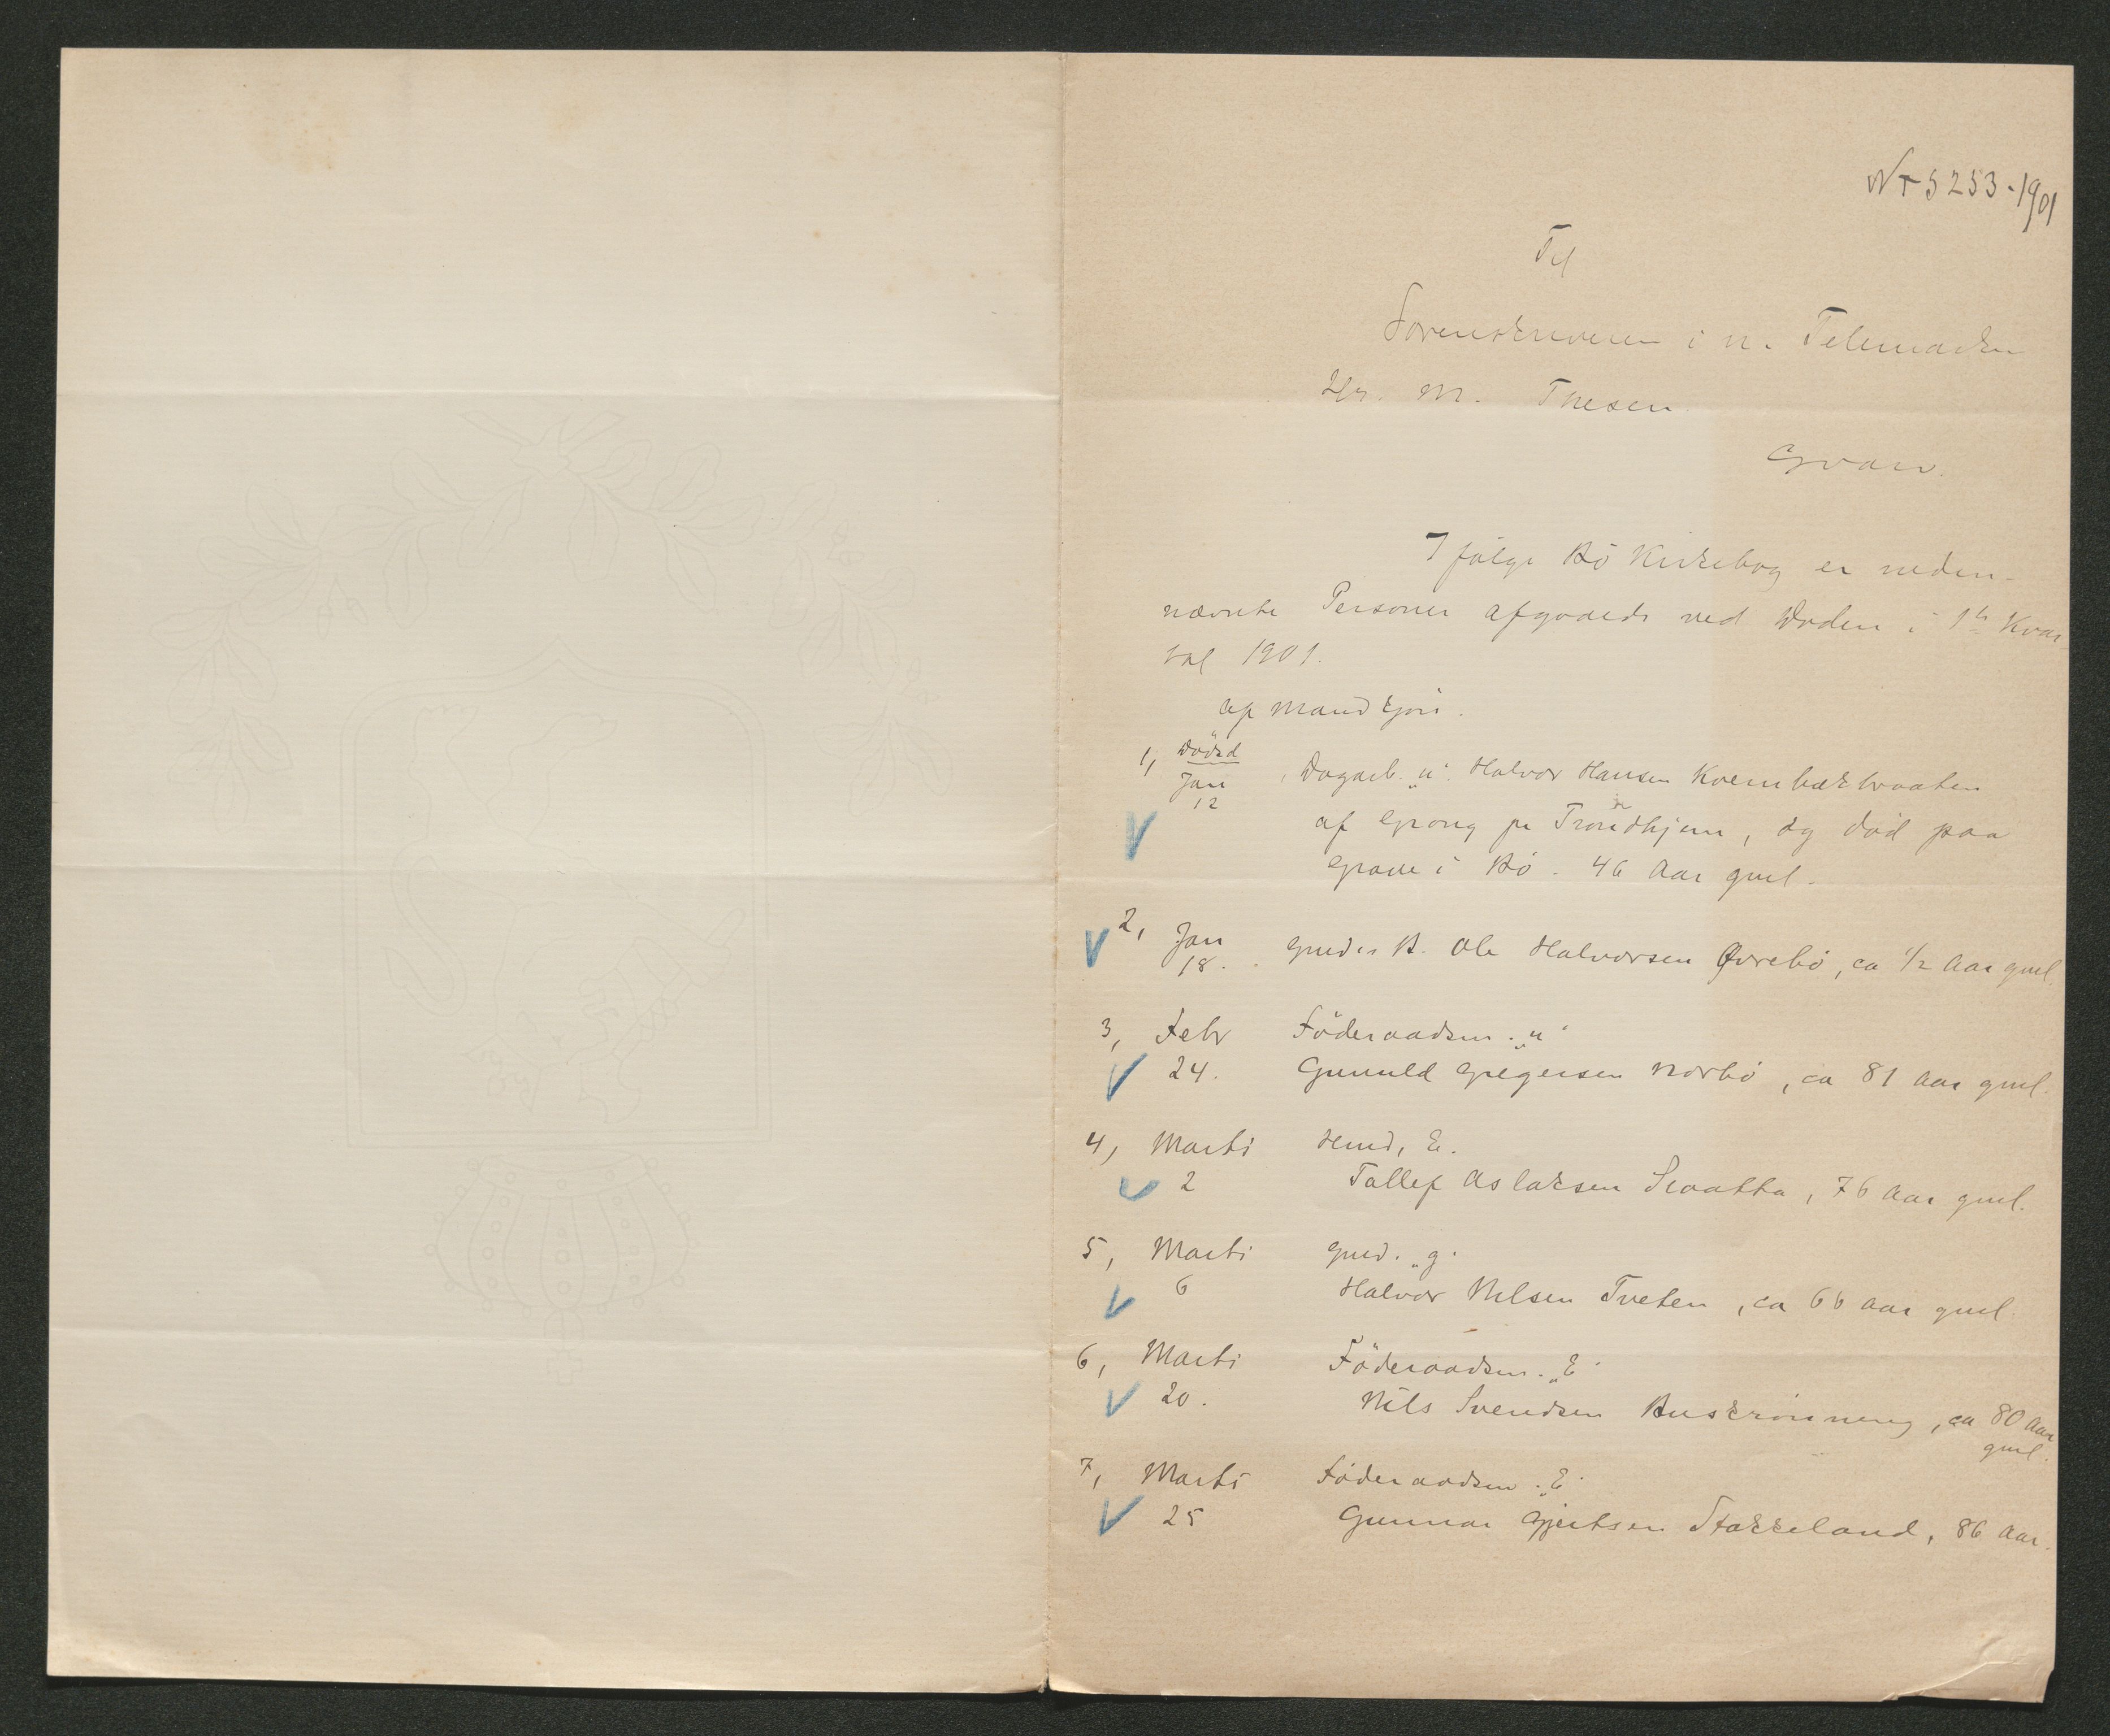 Nr 5253-1901
Til
Sorenskriveren i n. Telemarken
Hr. M. Thesen
Gvarv.
I følge Bö Kirkebog er neden-
nævnte Personer afgaaede ved Døden i 1ste Kvar
tal 1901.
af Mandkjøn.
1, Dödsd Jan 12 Dagarb. „u". Halvor Hansen Kvernbækbraaten
af Grong pr Trondhjem, og död paa
Grave i Bö. 46 Aar gml.
2, Jan 18. Gmds B. Ole Halvorsen Øvrebö, ca ½ Aar gml.
3, Febr Föderaadsm. „u"
24. Gunuld Gregersen Norbö, ca 81 Aar gml.
4, Marts Husmd, E.
2 Tallef Aslaksen Svaatta, 76 Aar gml.
5, Marts Gmd. „g"
6 Halvor Nilsen Tveten, ca 66 Aar gml.
6, Marts Föderaadsm. „E"
20. Nils Svendsen Buskrönning, ca 80 Aar
gml.
7, Marts Föderaadsm. „E"
25 Gunnar Gjertsen Stakkeland, 86 Aar.